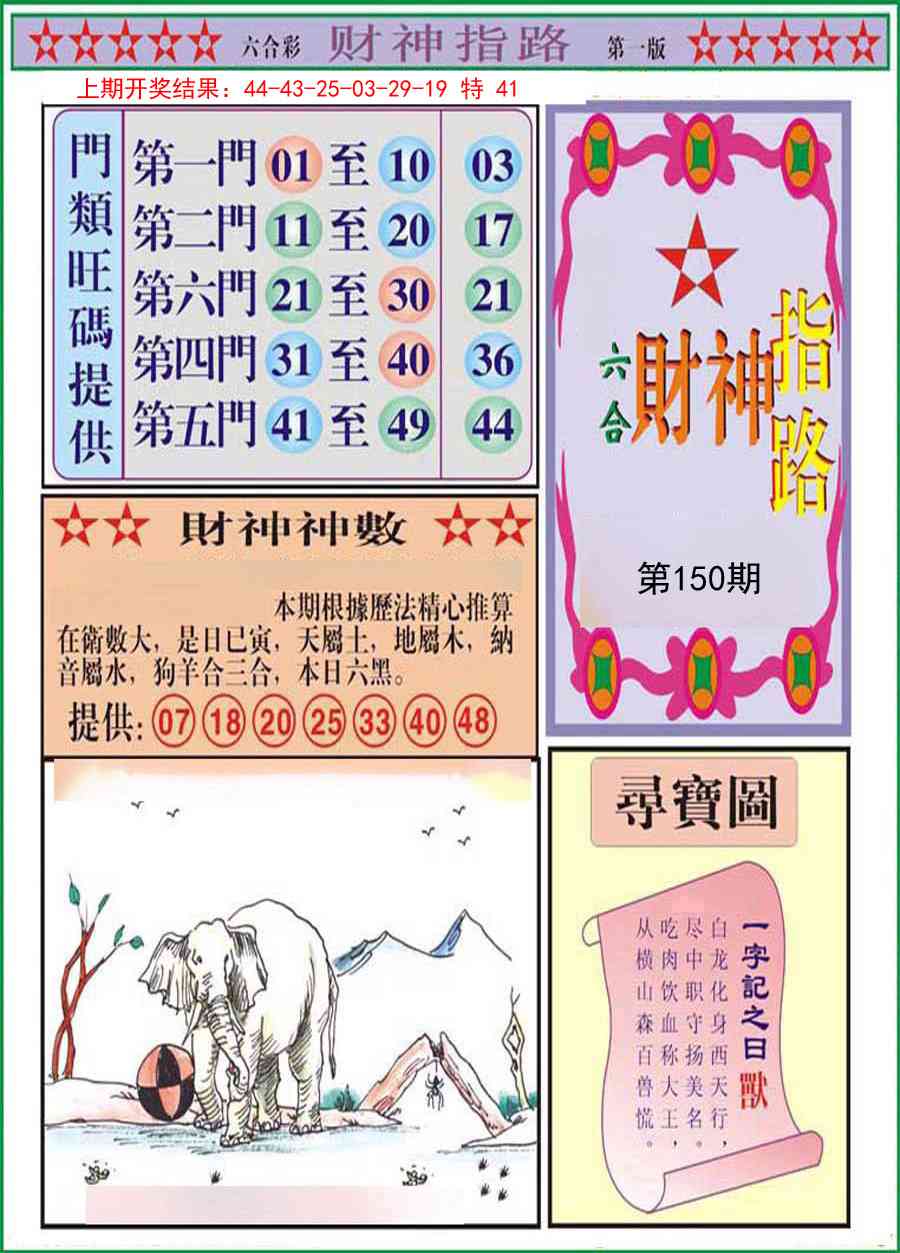 六合彩 财神指路 第一版
上期开奖结果：44-43-25-03-29-19 特 41
門類旺碼提供
第一門 01 至 10 03
第二門 11 至 20 17
第六門 21 至 30 21
第四門 31 至 40 36
第五門 41 至 49 44
六合
財神
指路
第150期
財神神數
本期根據歷法精心推算
在衛數大，是日已寅，天屬土，地屬木，納
音屬水，狗羊合三合，本日六黑。
提供: 07 18 20 25 33 40 48
尋寶圖
一字記之曰 獸
白龙化身西天行，
尽中职守扬美名。
吃肉饮血称大王，
从横山森百兽慌。